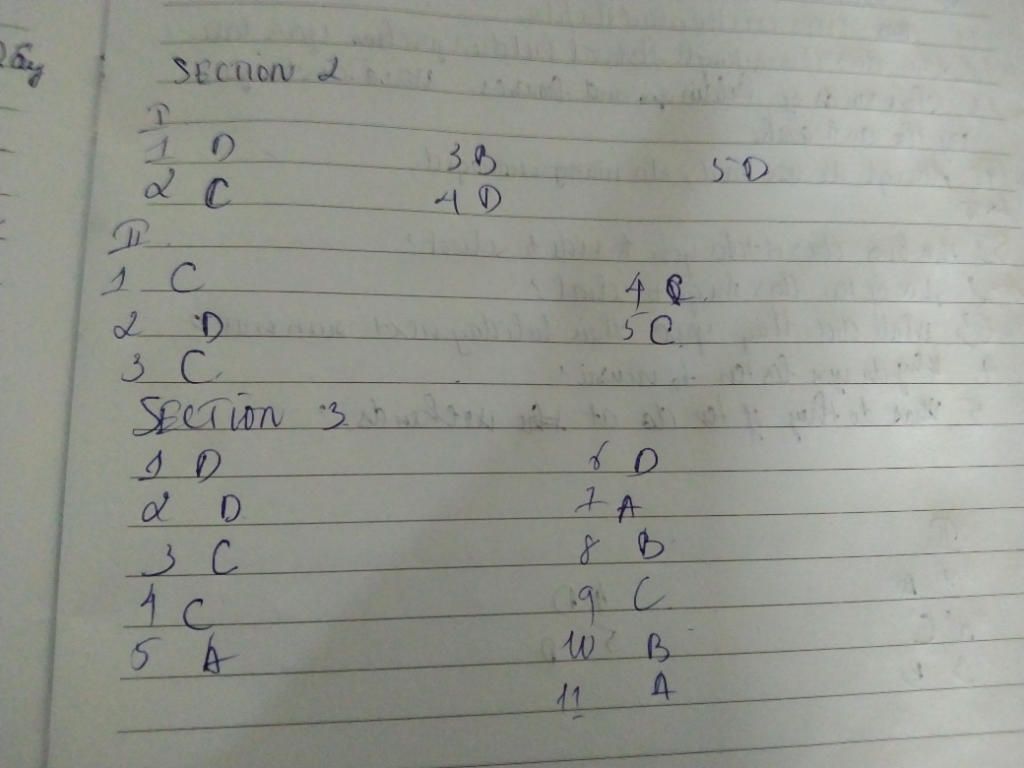 SECTION 2
I
1 D 3 B 5 D
2 C 4 D
II
1 C 4 C
2 D 5 C
3 C
SECTION 3
1 D 6 D
2 D 7 A
3 C 8 B
4 C 9 C
5 A 10 B
11 A